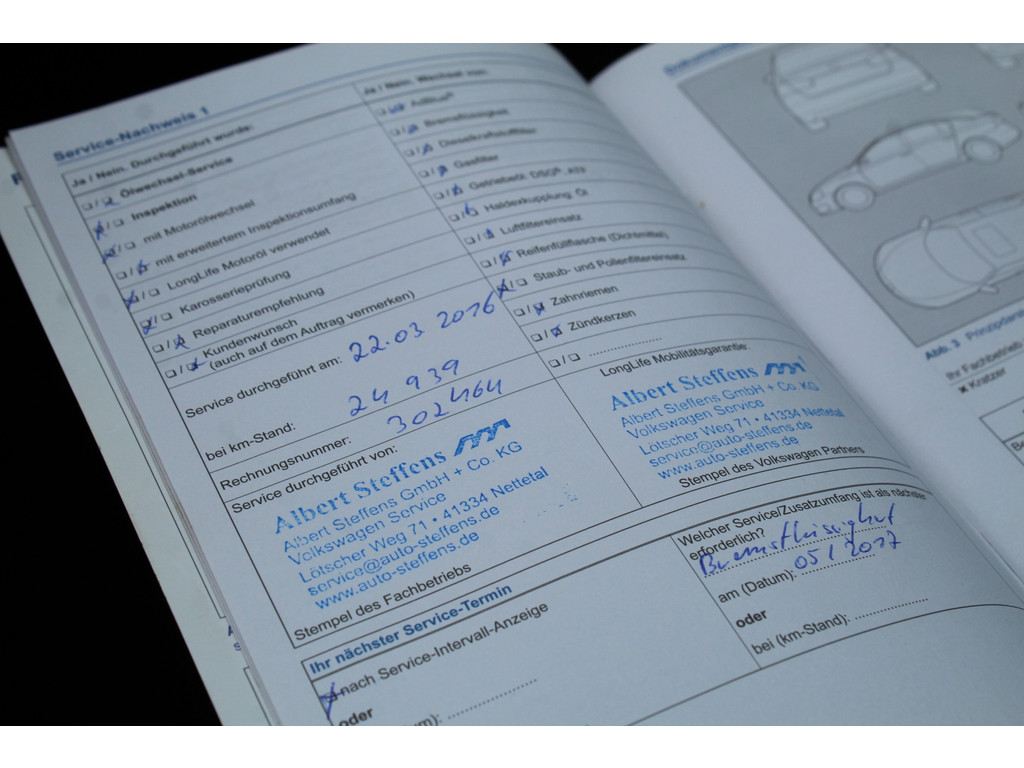 Service-Nachweis 1
Ja / Nein. Durchgeführt wurde:
Ölwechsel-Service
Inspektion
mit Motorölwechsel
mit erweitertem Inspektionsumfang
LongLife Motoröl verwendet
Karosserieprüfung
Reparaturempfehlung
Kundenwunsch
(auch auf dem Auftrag vermerken)
Service durchgeführt am: 22.03 2016
bei km-Stand: 24 939
Rechnungsnummer: 302464
Service durchgeführt von:
Albert Steffens
Albert Steffens GmbH + Co. KG
Volkswagen Service
Lötscher Weg 71 • 41334 Nettetal
service@auto-steffens.de
www.auto-steffens.de
Stempel des Fachbetriebs
Ja / Nein. Wechsel von:
AdBlue®
Bremsflüssigkeit
Dieselkraftstofffilter
Gasfilter
Getriebeöl: DSG®, ATF
Haldexkupplung: Öl
Luftfiltereinsatz
Reifenfüllflasche (Dichtmittel)
Staub- und Pollenfiltereinsatz
Zahnriemen
Zündkerzen
LongLife Mobilitätsgarantie:
Albert Steffens
Albert Steffens GmbH + Co KG
Volkswagen Service
Lötscher Weg 71 • 41334 Nettetal
service@auto-steffens.de
www.auto-steffens.de
Stempel des Volkswagen Partners
Ihr nächster Service-Termin
nach Service-Intervall-Anzeige
oder
Welcher Service/Zusatzumfang ist als nächster
erforderlich?
Bremsflüssigkeit
am (Datum): 05/2017
oder
bei (km-Stand):
Abb. 3
Ihr Fachbetrieb
Kratzer